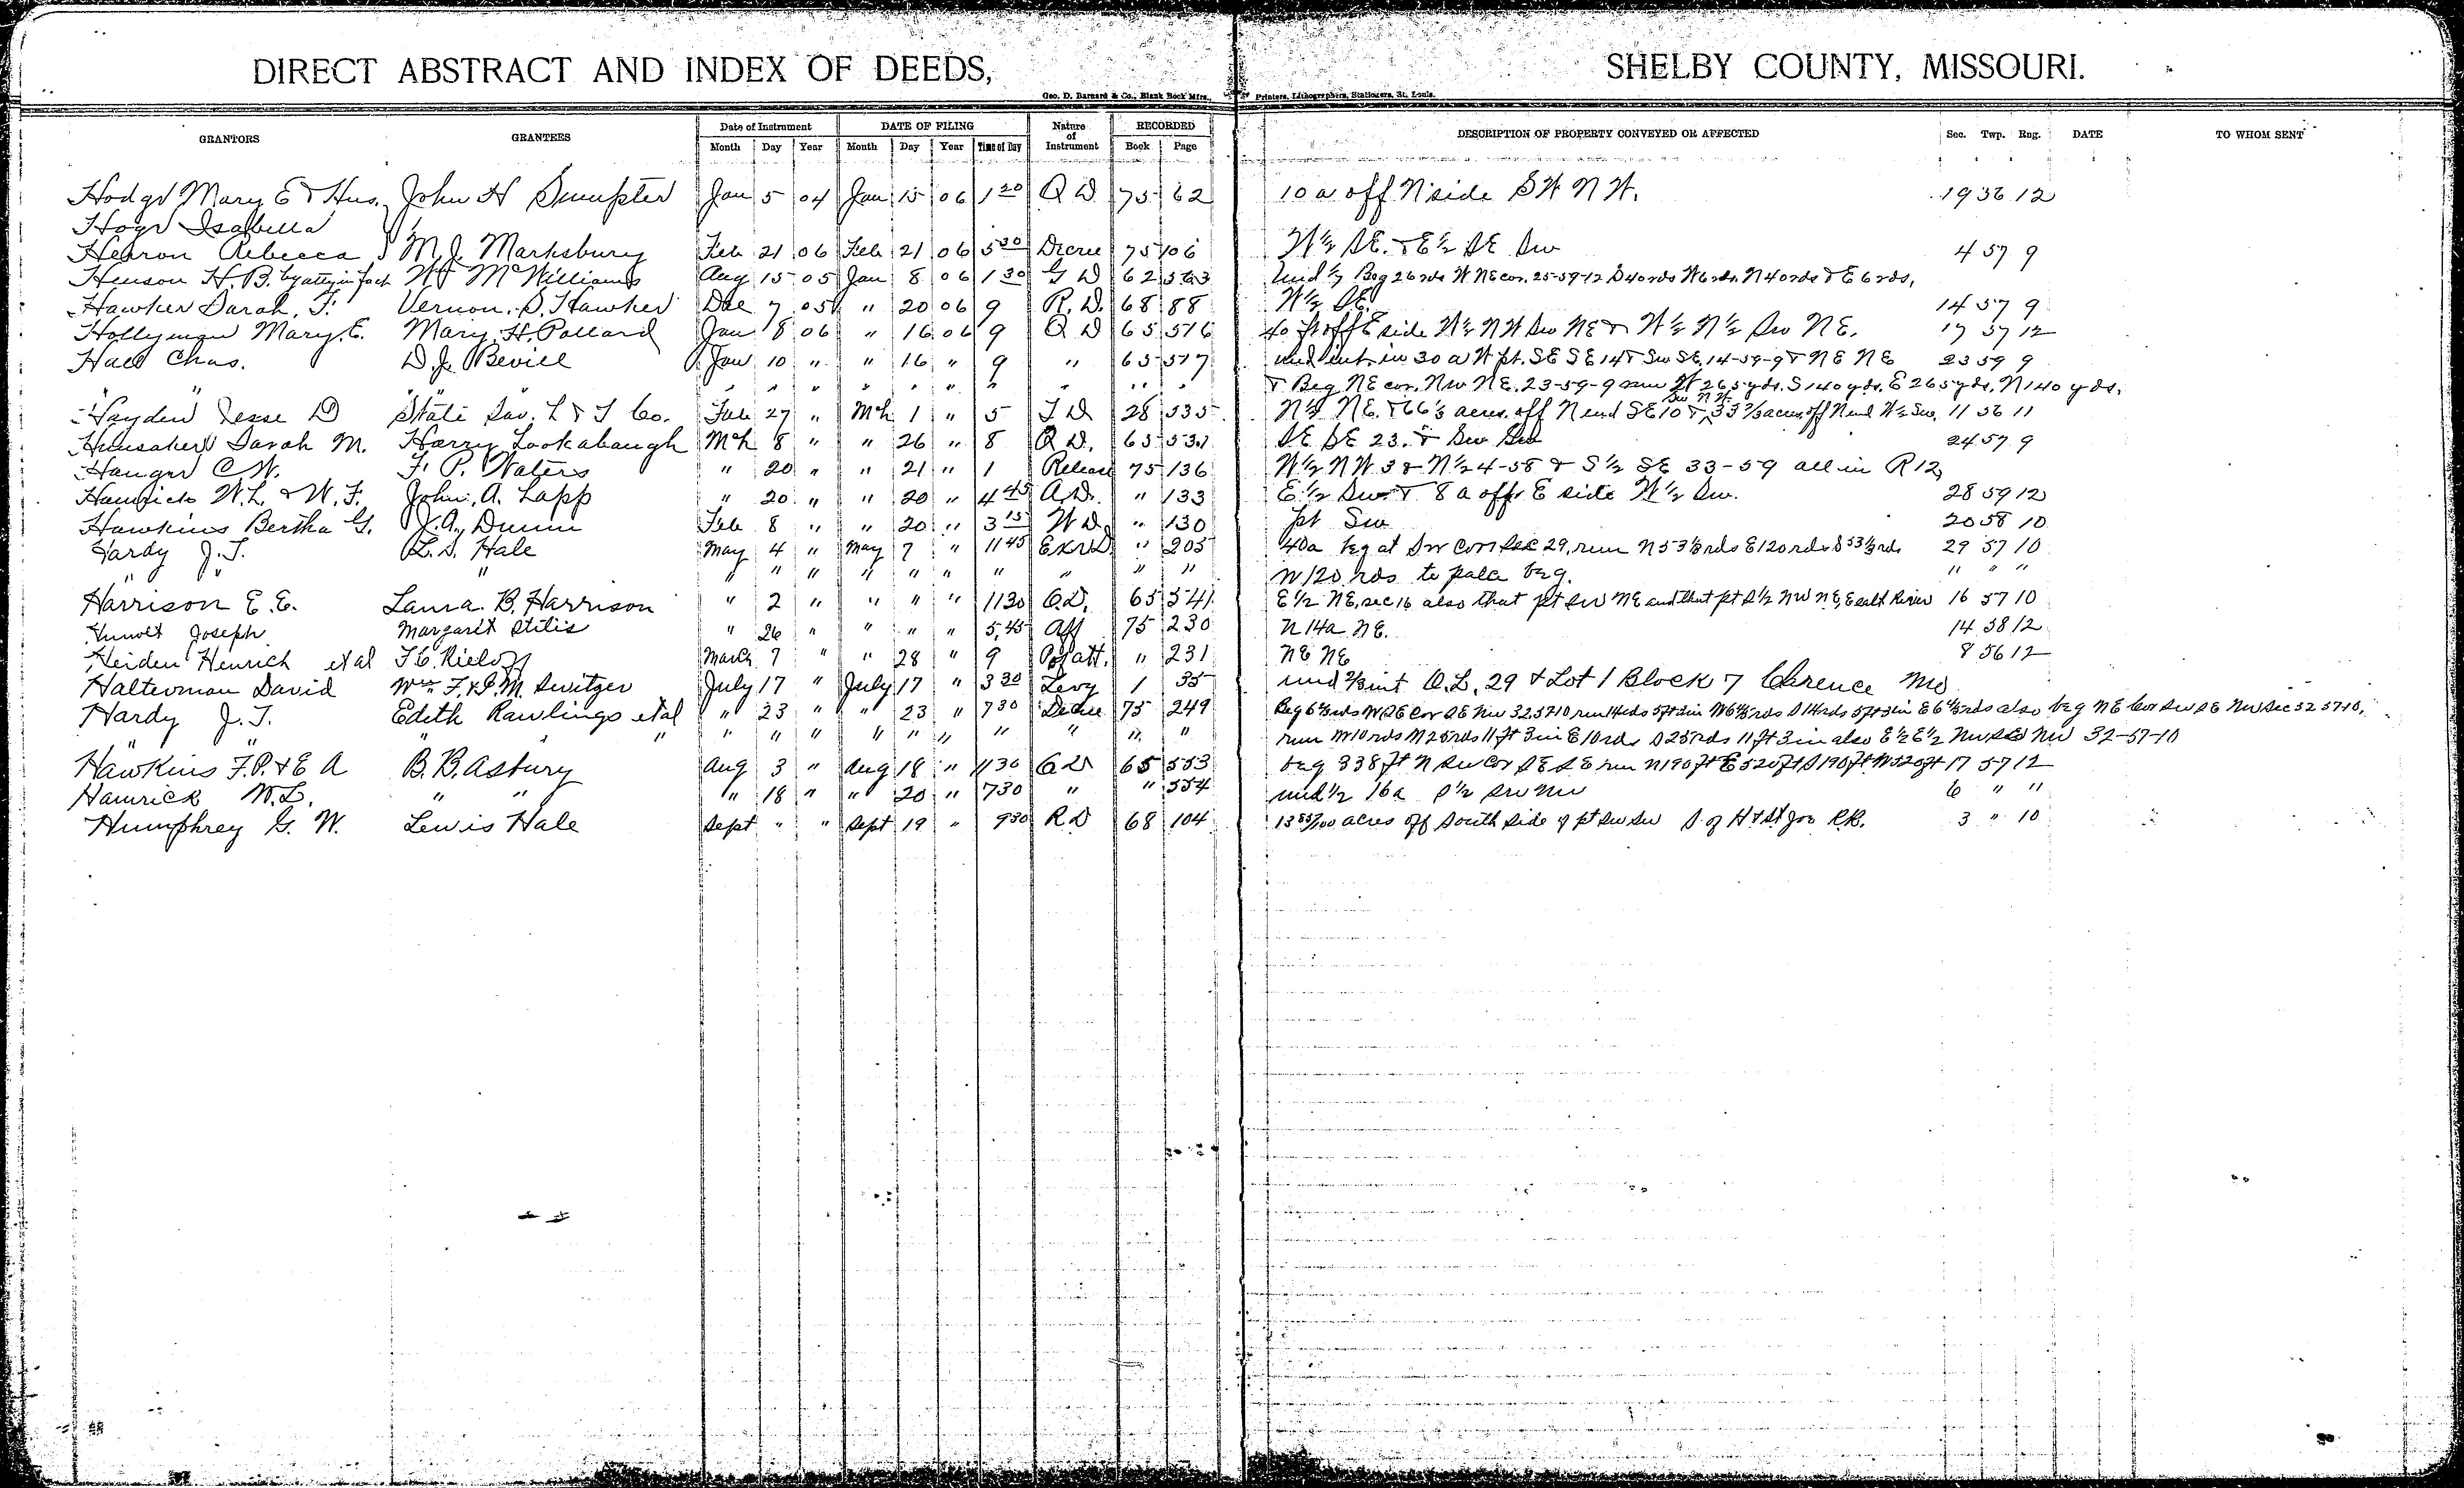 DIRECT ABSTRACT AND INDEX OF DEEDS, SHELBY COUNTY, MISSOURI.
Geo. D. Barnard & Co., Blank Book Mfrs., Printers, Lithographers, Stationers, St. Louis.
GRANTORS GRANTEES Date of Instrument DATE OF FILING Nature of Instrument RECORDED DESCRIPTION OF PROPERTY CONVEYED OR AFFECTED Sec. Twp. Rng. DATE TO WHOM SENT
Month Day Year Month Day Year Time of Day Book Page
Hodge Mary E & Hus. John H Sumpter Jan 5 04 Jan 15 06 1 20 Q D 75 62 10 a off N side S W N W. 19 56 12
Hoge Isabella
Hearon Rebecca M. J. Marksbury Feb 21 06 Feb 21 06 5 30 Decree 75 106 W ½ SE. & E ½ SE Sw 4 57 9
Henson H. B. by atty in fact W J McWilliams Aug 15 05 Jan 8 06 1 30 G D 62 563 Und ½ Beg 26 rds W NE cor. 25-59-12 S 40 rds W 6 rds. N 40 rds & E 6 rds,
Hawker Sarah, J. Vernon. S. Hawker Dec 7 05 " 20 06 9 R. D. 68 88 W ½ SE. 14 57 9
Hollyman Mary. E. Mary. H. Pollard Jan 8 06 " 16 06 9 Q D 65 516 40 ft off E side W ½ N W Sw NE & W ½ N ½ Sw NE. 17 57 12
Hall Chas. D. J. Bevill Jan 10 " " 16 " 9 " 65 517 und int. in 30 a W pt. SE SE 14 & Sw SE. 14-59-9 & NE NE 23 59 9
" " " " " " " " " " " & Beg NE cor. Nw NE. 23-59-9 run W 265 yds. S 140 yds. E 265 yds. N 140 yds.
Hayden Jesse D State Sav. L & T Co. Feb 27 " Mch 1 " 5 T D 28 535 N ½ NE. & 66 ⅔ acres. off N end SE 10 & Sw N W 33 ⅓ acres off N end W ½ Sw. 11 56 11
Hunsaker Sarah M. Harry Lookabaugh Mch 8 " " 26 " 8 Q D. 65 531 SE SE 23. & Sw Sw 24 57 9
Hanger C W. F. P. Waters " 20 " " 21 " 1 Release 75 136 W ½ N W 3 & N ½ 4-58 & S ½ SE 33-59 all in R 12
Hamrick W. L. & W. F. John. A. Lapp " 20 " " 20 " 4 45 A D. " 133 E ½ Sw & 8 a off E side W ½ Sw. 28 59 12
Hawkins Bertha G. J. A. Dunn Feb 8 " " 20 " 3 15 W D. " 130 pt Sw 20 58 10
Hardy J. T. L. S. Hale May 4 " May 7 " 11 45 Exr D " 205 40a beg at Sw Corr Sec 29, run N 53 ⅓ rds E 120 rds S 53 ⅓ rds 29 57 10
" " " " " " " " " " " " " W 120 rds to palce beg. " " "
Harrison E. E. Laura. B. Harrison " 2 " " " " 11 30 Q. D. 65 541 E ½ NE, sec 16 also that pt SW NE and that pt S ½ NW NE, E salt River 16 57 10
Hunolt Joseph Margaret Stitis " 26 " " " " 5,45 Aff 75 230 N 14a NE. 14 58 12
Heiden Henrich et al March 7 " " 28 " 9 " 231 NE NE 8 56 12
Halterman David Wm F. & J. M. Switzer July 17 " July 17 " 3 30 Levy 1 35 und ⅔ int O. L. 29 & Lot 1 Block 7 Clarence Mo
Hardy J. T. Edith Rawlings et al " 23 " " 23 " 7 30 Decree 75 249 Beg 6 ⅔ rds W SE Cor SE Nw 32 57 10 run 14 rds 5 ft 3 in W 6 ⅔ rds S 14 rds 5 ft 3 in E 6 ⅔ rds also beg NE Cor Sw SE Nw Sec 32 57 10,
" " " " " " " " " " " " " run W 10 rds N 25 rds 11 ft 3 in E 10 rds S 25 rds 11 ft 3 in also E ½ E ½ Nw 32-57-10
Hawkins F. P. & E A B. B. Asbury Aug 3 " Aug 18 " 11 30 Q D 65 553 beg 338 ft N Sw Cor SE SE run N 190 ft E 520 ft S 190 ft W 520 ft 17 57 12
Hamrick W. L. " " " 18 " " 20 " 7 30 " " 554 und ½ 16a S ½ Sw Nw 6 " "
Humphrey G. W. Lewis Hale Sept " " Sept 19 " 9 30 R D 68 104 13 85/100 acres off South side of pt Sw Sw S. of H & St Joe R.R. 3 " 10